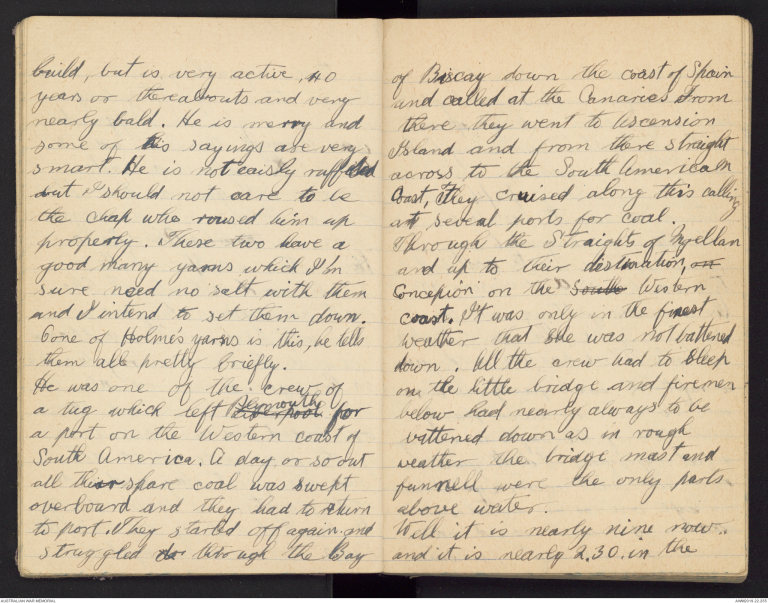 build, but is very active, 40
years or thereabouts and very
nearly bald. He is merry and
some of his sayings are very
smart. He is not eaisly raffled
but I should not care to be
the chap who roused him up
properly. These two have a
good many yarns which I'm
sure need no salt with them
and I intend to set them down.
One of Holmes yarns is this, he tells
them all pretty briefly.
He was one of the crew of
a tug which left Plymouth Liverpool for
a port on the Western coast of
South America. A day or so out
all their spare coal was swept
overboard and they had to return
to port. They started off again and
struggled through the Bay
of Biscay down the coast of Spain
and called at the Canaries From
there they went to Ascension
Island and from there straight
across to the South American
Coast, They cruised along this calling
at several ports for coal.
Through the Straights of Mgellan
and up to their destination, on
Conception on the South Western
coast. It was only in the finest
weather that she was not battened
down. All the crew had to sleep
on the little bridge and firemen
below had nearly always to be
battened down as in rough
weather the bridge mast and
funnell were the only parts
above water.
Well it is nearly nine now
and it is nearly 2.30. in the
AUSTRALIAN WAR MEMORIAL